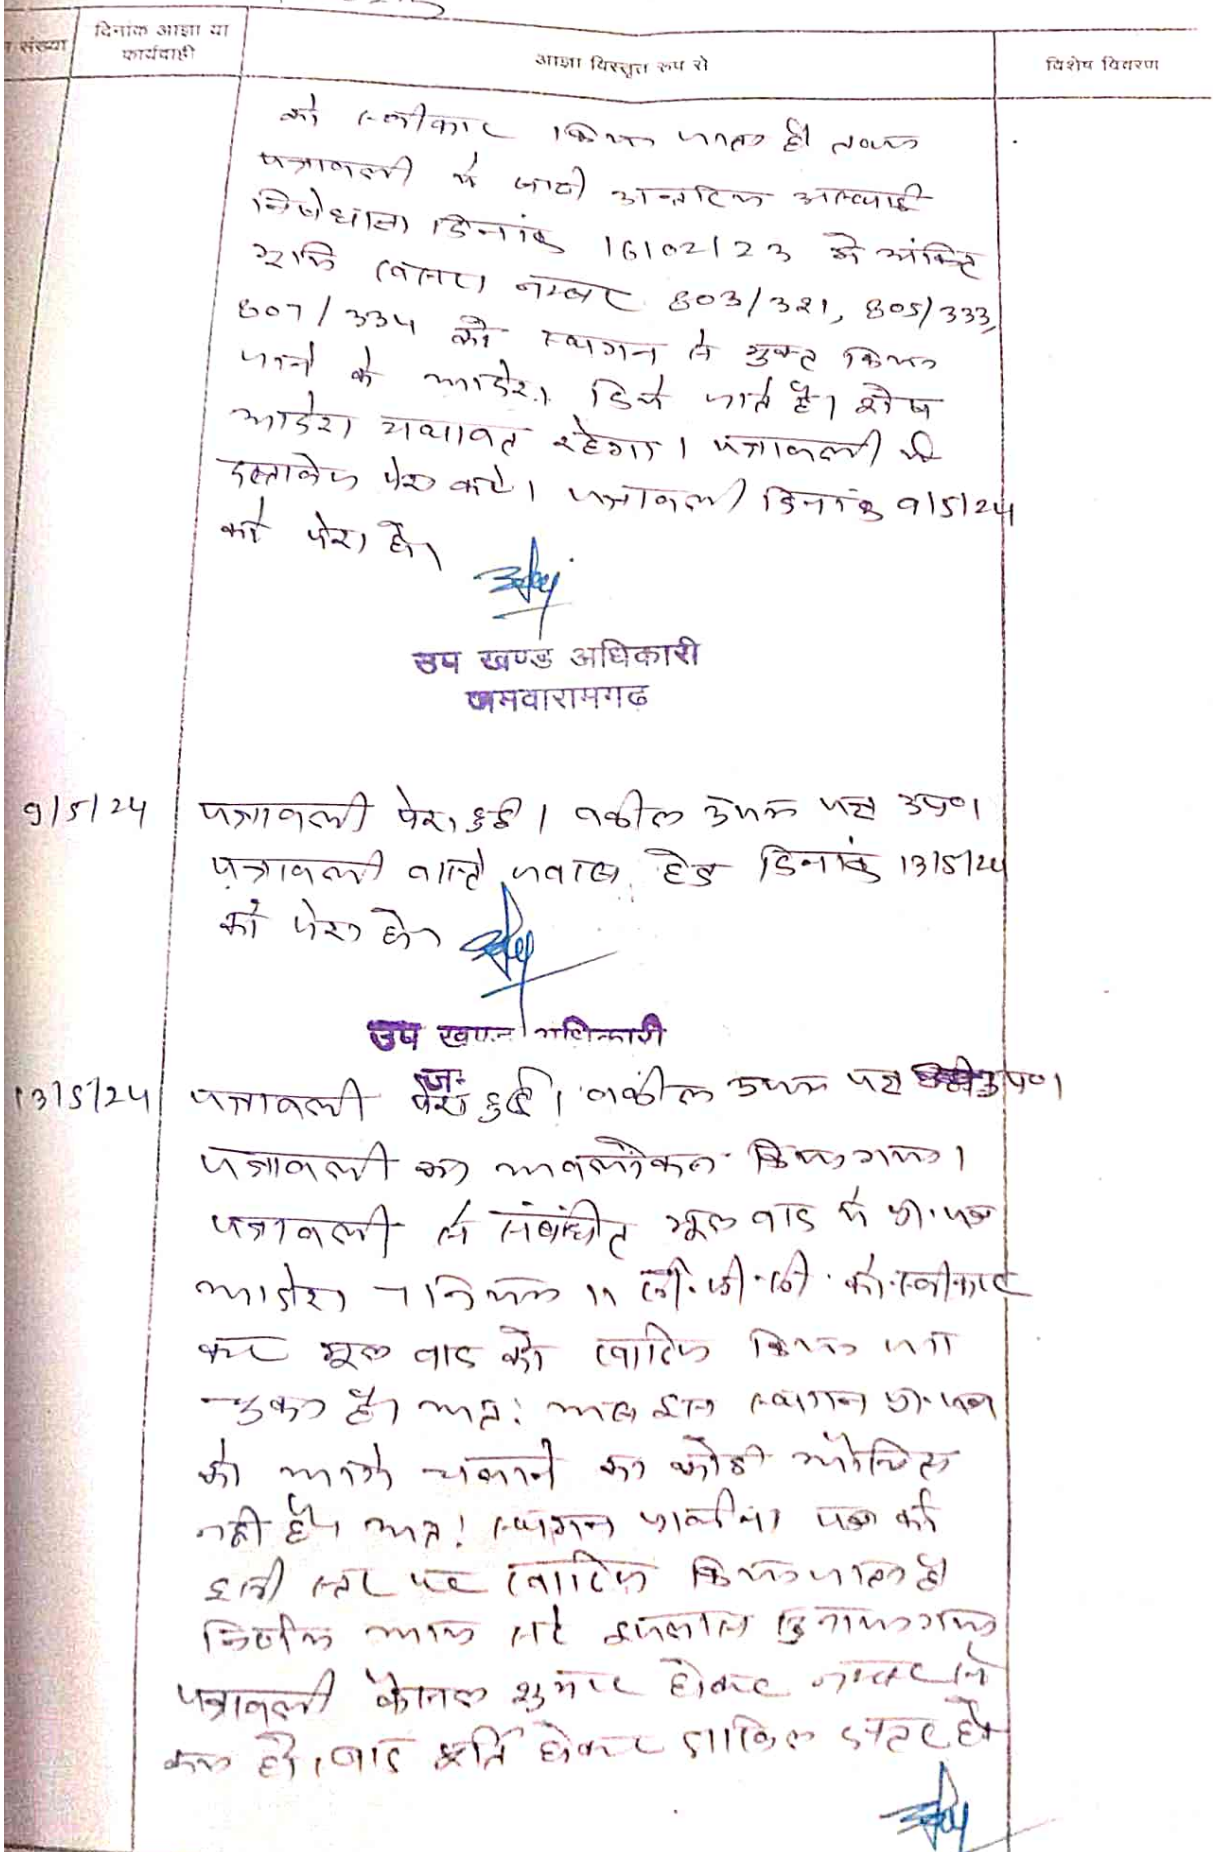 संख्या
दिनांक आज्ञा या
कार्यवाही
आज्ञा विस्तृत रूप से
विशेष विवरण
को स्वीकार किया जाता है तथा
पत्रावली में जारी अन्तरिम अस्थाई
निषेधाज्ञा दिनांक 16/02/23 में अंकित
भूमि खसरा नम्बर 803/321, 805/333,
807/334 को स्थगन से मुक्त किया
जाने के आदेश दिये जाते है। शेष
आदेश यथावत रहेगा। पत्रावली में
दस्तावेज पेश करें। पत्रावली दिनांक 9/5/24
को पेश हो।
उप खण्ड अधिकारी
जमवारामगढ
9/5/24
पत्रावली पेश हुई। वकील उभय पक्ष उप०।
पत्रावली वास्ते जवाब हेतु दिनांक 13/5/24
को पेश हो।
उप खण्ड अधिकारी
13/5/24
पत्रावली पेश हुई। वकील उभय पक्ष उप०।
पत्रावली का अवलोकन किया गया।
पत्रावली से संबंधित मूल वाद में प्रा.पत्र
आदेश 7 नियम 11 सी.पी.सी. को स्वीकार
कर मूल वाद को खारिज किया जा
चुका है। अतः अब इस स्थगन प्रा.पत्र
को आगे चलाने का कोई औचित्य
नही है। अतः स्थगन प्रार्थना पत्र को
इसी स्तर पर खारिज किया जाता है।
निर्णय आज सरे इजलास सुनाया गया
पत्रावली फैसल शुमार होकर नम्बर से
कम हो। बाद पूर्ति होकर दाखिल दफ्तर हो